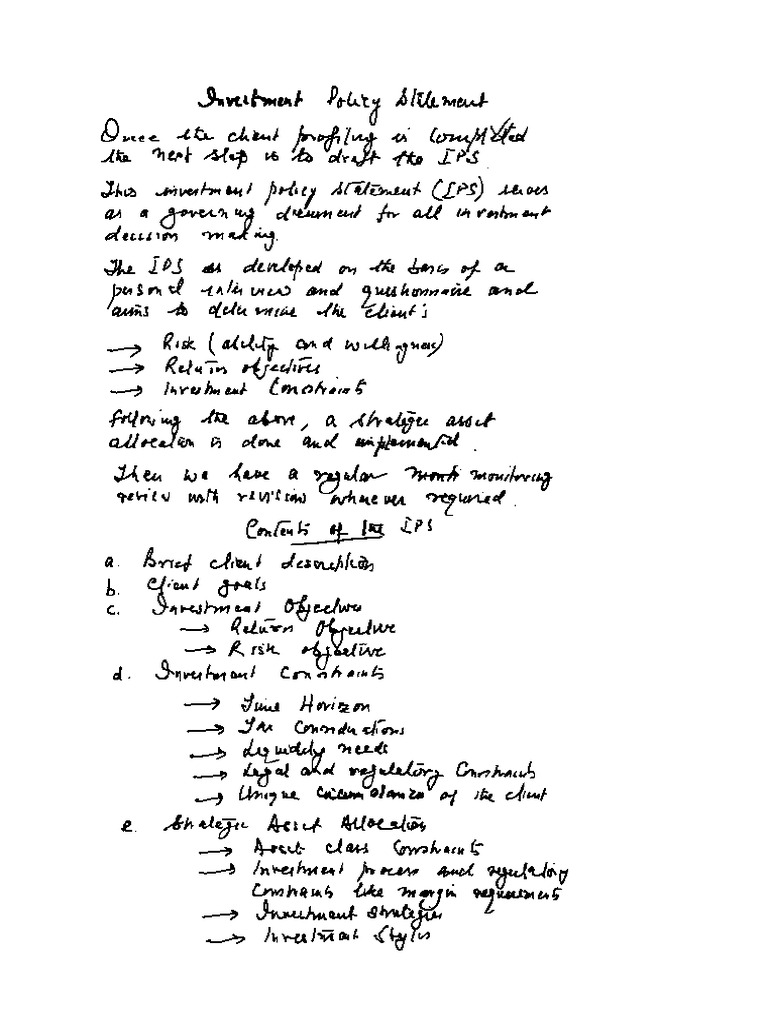 Investment Policy Statement
Once the client profiling is completed
the next step is to draft the IPS.
This investment policy statement (IPS) serves
as a governing document for all investment
decision making.
The IPS is developed on the basis of a
personal interview and questionnaire and
aims to determine the client's
→ Risk (ability and willingness)
→ Return objectives
→ Investment Constraints
Following the above, a strategic asset
allocation is done and implemented.
Then we have a regular monitoring
review with revision wherever required.
Contents of the IPS
a. Brief client description
b. Client goals
c. Investment Objectives
→ Return Objective
→ Risk objective
d. Investment Constraints
→ Time Horizon
→ Tax Considerations
→ Liquidity needs
→ Legal and regulatory Constraints
→ Unique circumstances of the client
e. Strategic Asset Allocation
→ Asset class Constraints
→ Investment process and regulatory
Constraints like margin requirements
→ Investment strategies
→ Investment Styles